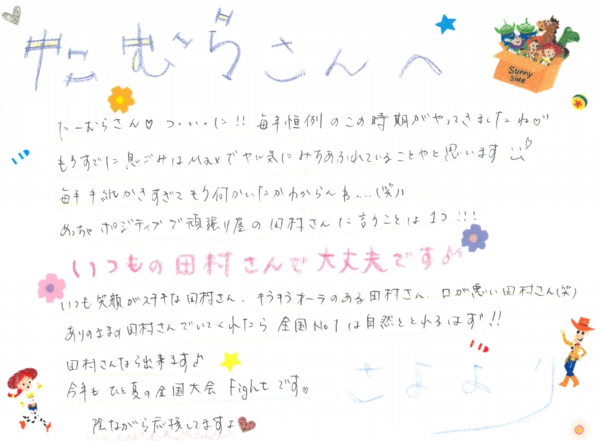 たむらさんへ
Sunny Side
たーむらさん♡ つ・い・に!! 毎年恒例のこの時期がやってきましたね♡
もうすでに意ごみはMaxでやる気にみちあふれていることやと思います
毎年手紙かきすぎてもう何かいたかわからんわ....(笑)
めっちゃポジティブで頑張り屋の田村さんに言うことは1つ!!!
いつもの田村さんで大丈夫です♪
いつも笑顔がステキな田村さん、キラキラオーラのある田村さん、口が悪い田村さん(笑)
ありのままの田村さんでいてくれたら全国No1は自然ととれるはず!!
田村さんなら出来ます♪
今年もひと夏の全国大会Fightです。
陰ながら応援してますよ♥
さよより